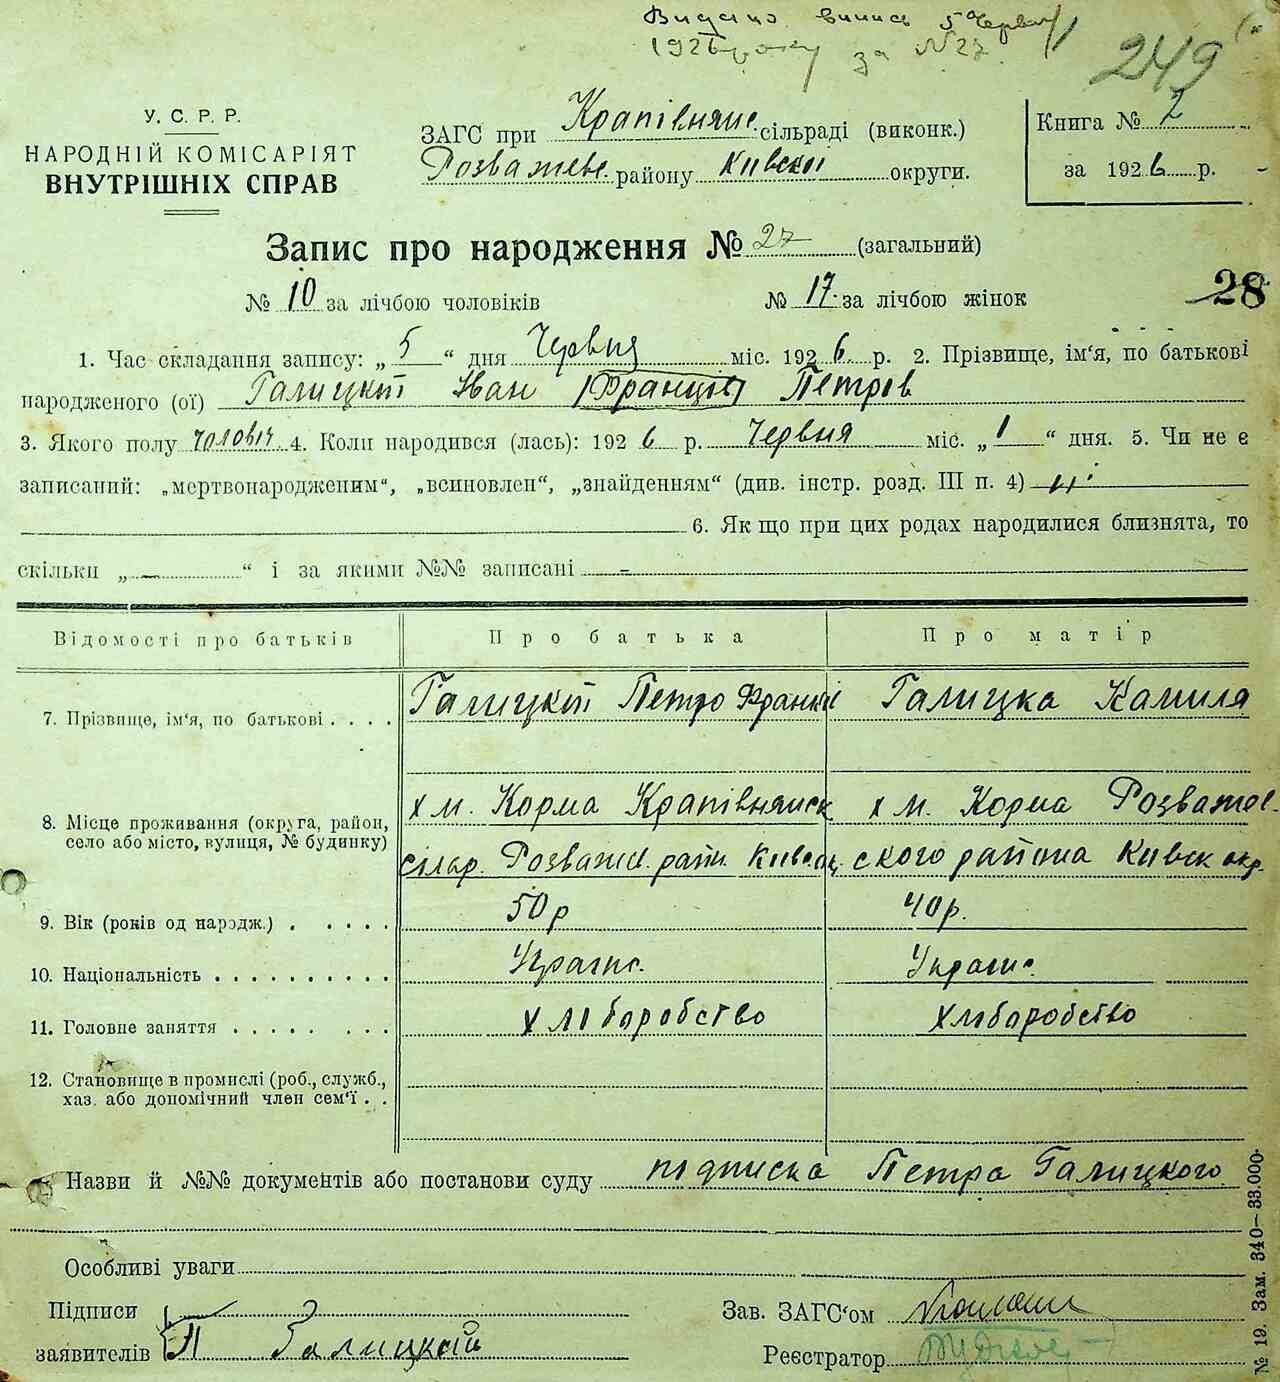 Видано випис 5 Червня
1926 року за №27
249
У. С. Р. Р.
НАРОДНІЙ КОМІСАРІЯТ
ВНУТРІШНІХ СПРАВ
ЗАГС при Крапівнянс. сільраді (виконк.)
Розважевс. району Київської округи.
Книга № 2
за 1926 р.
Запис про народження № 27 (загальний)
№ 10 за лічбою чоловіків № 17 за лічбою жінок
28
1. Час складання запису: „5“ дня Червня міс. 1926 р. 2. Прізвище, ім'я, по батькові
народженого (ої) Галицкий Іван (Франців) Петров
3. Якого полу чоловіч 4. Коли народився (лась): 1926 р. Червня міс. „1“ дня. 5. Чи не є
записаний: „мертвонародженим“, „всиновлен“, „знайденням“ (див. інстр. розд. III п. 4)
6. Як що при цих родах народилися близнята, то
скільки „–“ і за якими №№ записані –
Відомості про батьків Про батька Про матір
7. Прізвище, ім'я, по батькові . . . . Галицкій Петро Франк Галицка Камиля
8. Місце проживання (округа, район, село або місто, вулиця, № будинку)
х м. Корма Крапівнянск х м. Корма Розважев-
сілрр. Розважев. райн. Київ ского района Киевск окр.
9. Вік (років од народж.) . . . . . 50р 40р.
10. Національність . . . . . . . . . . Украінс. Украінс.
11. Головне заняття . . . . . . . . . хліборобство хліборобство
12. Становище в промислі (роб., служб.,
хаз. або допомічний член сем'ї . .
Назви й №№ документів або постанови суду підписка Петра Галицкого
Особливі уваги
Підписи
заявителів П Галицкий
Зав. ЗАГС'ом
Реєстратор
№ 19. Зам. 340–33.000.